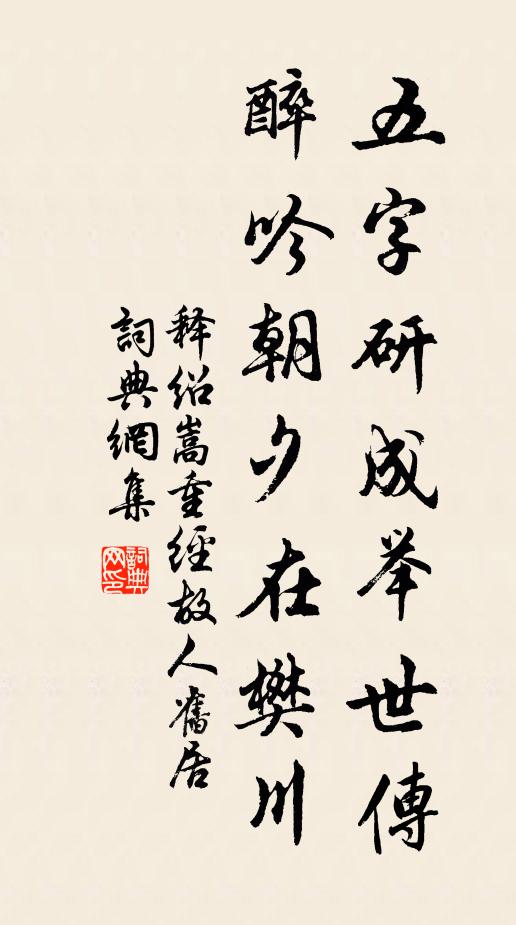 五字研成举世傳
醉吟朝夕在樊川
释绍嵩重經故人舊居
詞典網集
詞典网印